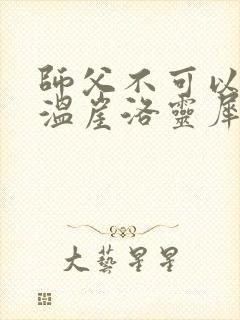 師父不可以
溫崖洛靈犀
大藝星星